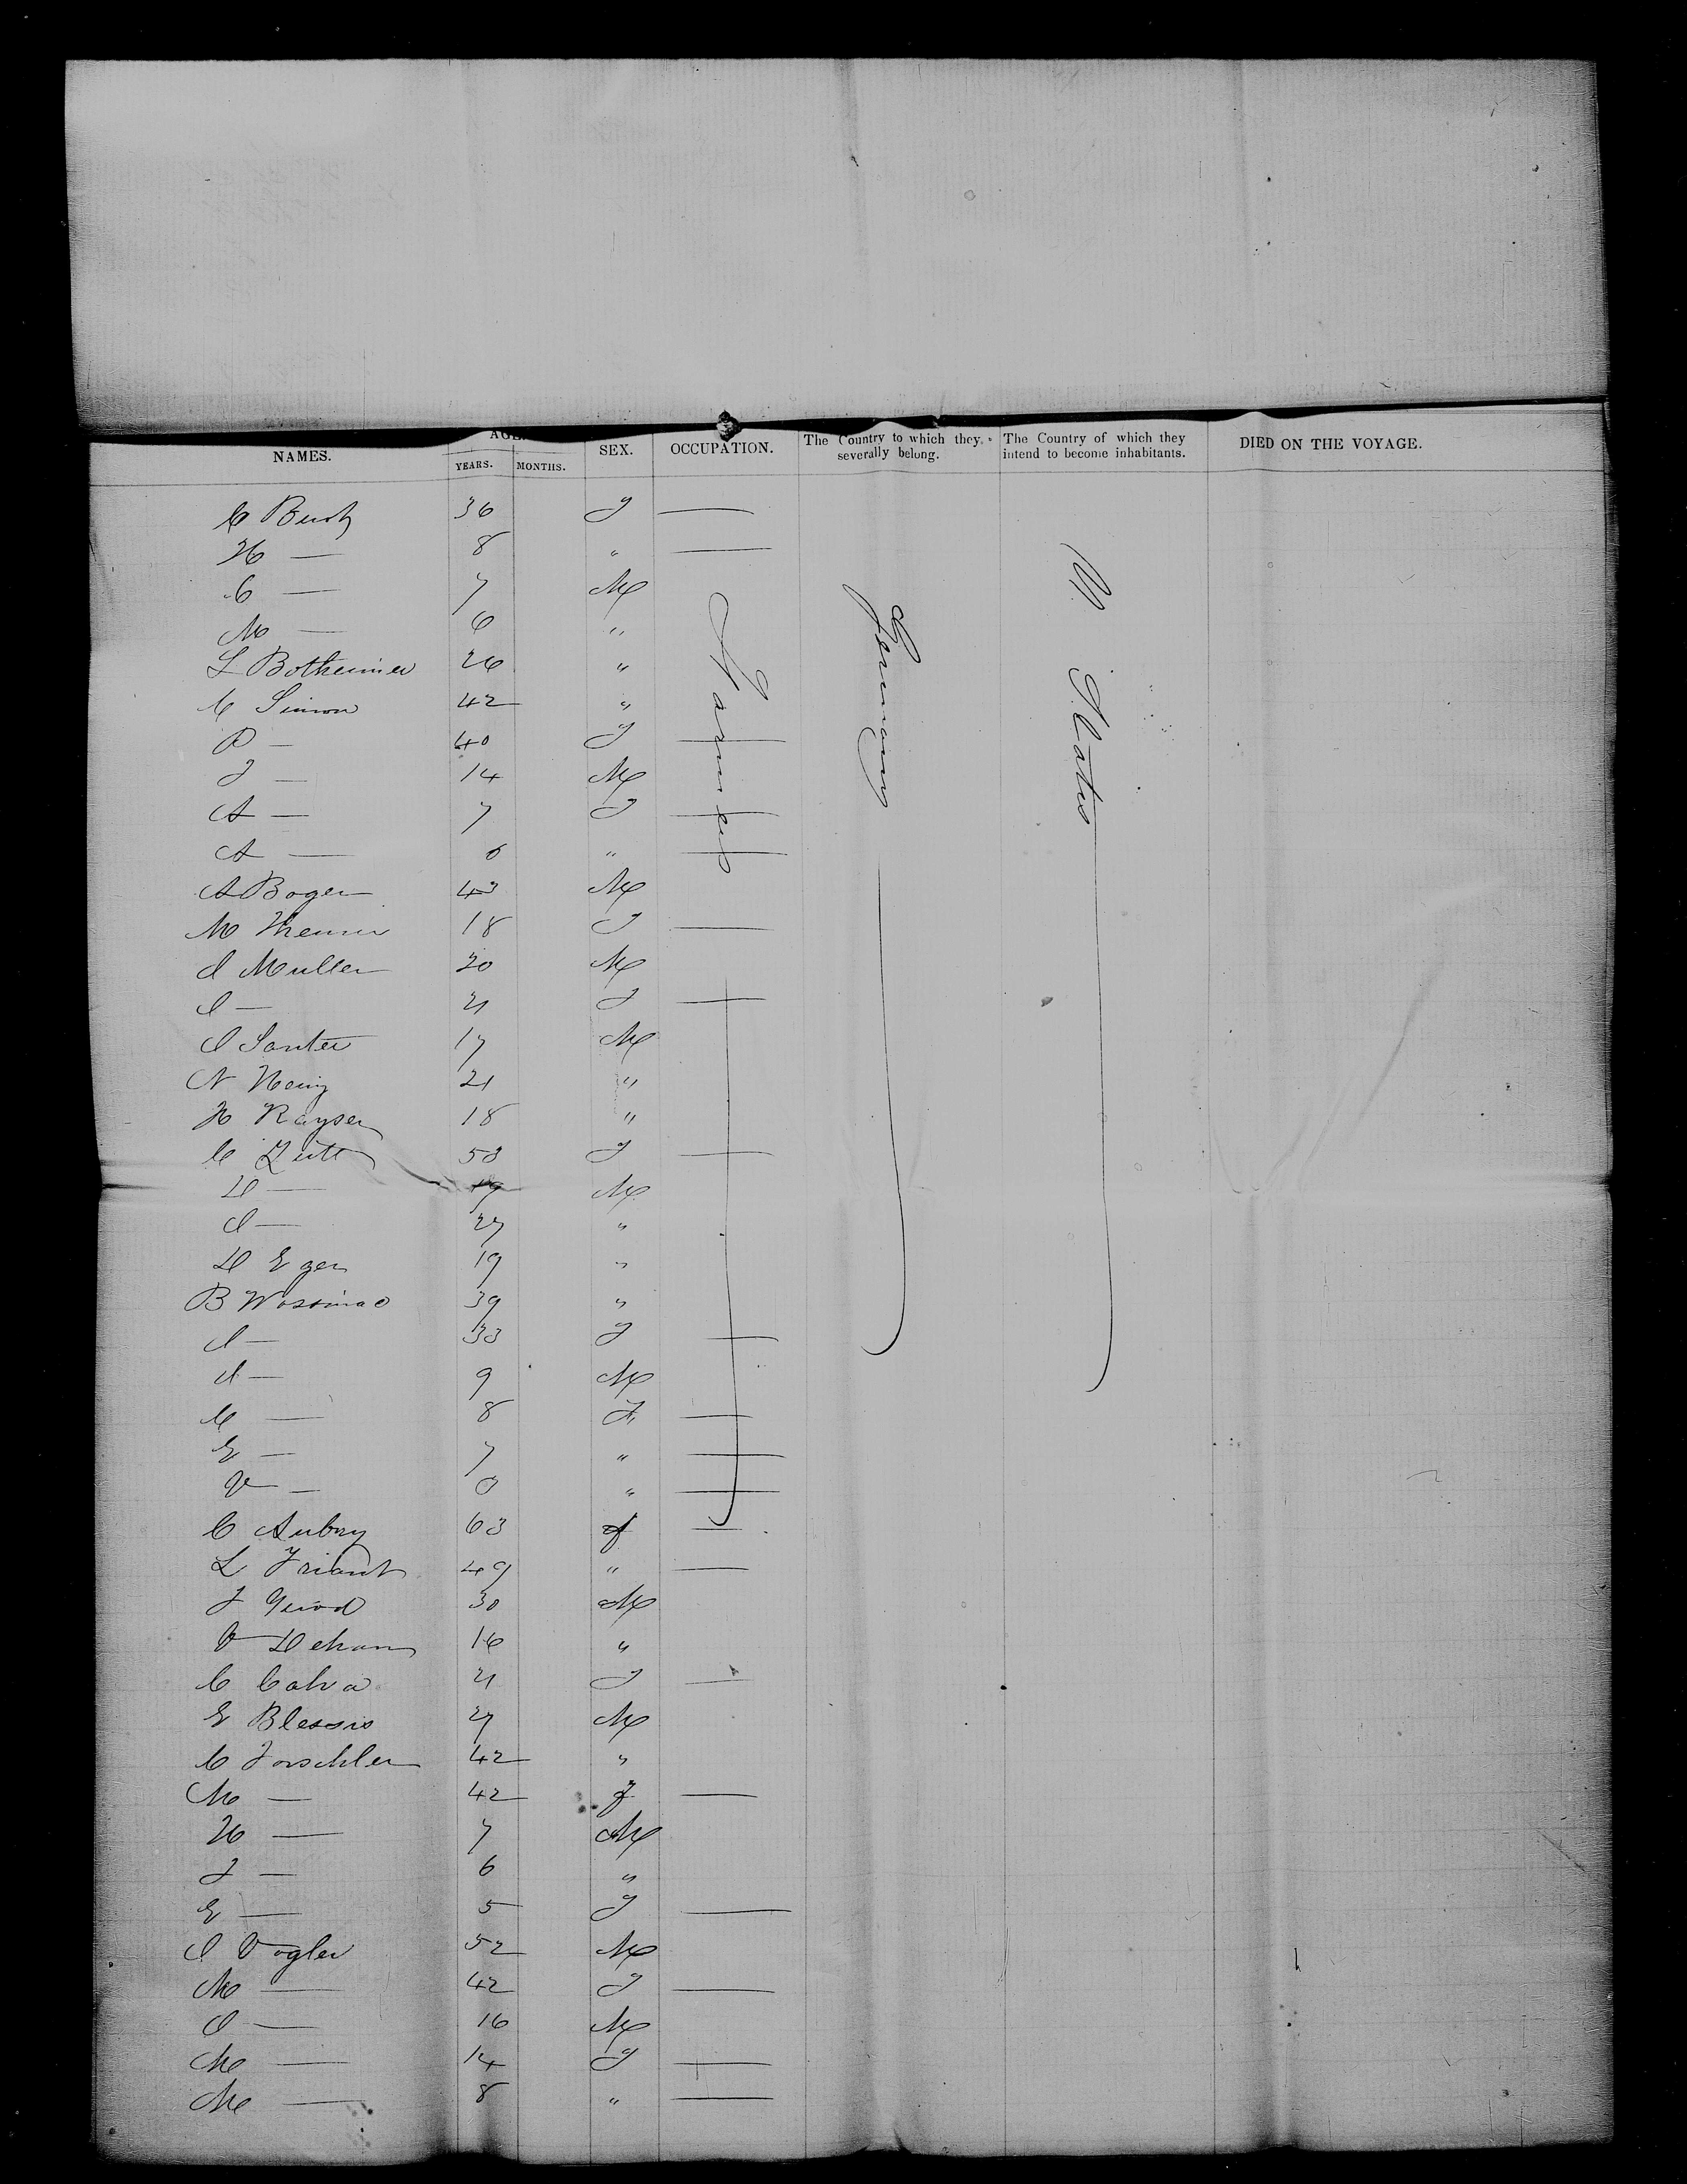 NAMES. AGE. SEX. OCCUPATION. The Country to which they severally belong. The Country of which they intend to become inhabitants. DIED ON THE VOYAGE.
YEARS. MONTHS.
Farmers
Germany
U. States
C 36 F —
H — 8 " —
C — 7 M
M — 6 "
L 26 "
C Simon 42 "
P — 40 F —
J — 14 M
A — 7 F —
A — 6 " —
A Boger 43 M
M 18 F —
J Muller 20 M
J — 21 F —
J Santer 17 M
N 21 "
H Kayser 18 "
C 53 F —
D — 19 M
J — 27 "
D Eger 19 "
B 39 "
J — 33 F —
J — 9 M
C — 8 F —
E — 7 " —
V — 0 " —
C Aubry 63 f —
L Friant 49 " —
J 30 M
V Deham 16 "
C 21 F —
E Blessis 27 M
C Forschler 42 "
M — 42 F —
H — 7 M
J — 6 "
E — 5 F —
J Vogler 52 M
M — 42 F —
J — 16 M
M — 14 F —
M — 8 " —